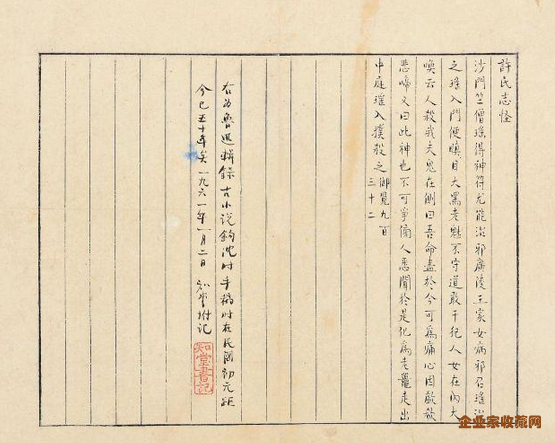 許氏志怪
沙門竺僧瑤得神符尤能治邪廣陵王家女病邪召瑤治
之瑤入門便瞋目大罵老魅不守道敢干犯人女在內大
喚云人殺我夫鬼在側曰吾命盡於今可為痛心因歔欷
悲啼又曰此神也不可爭傍人悉聞於是化為老鼉走出
中庭瑤入撲殺之御覽九百
三十二
右為魯迅輯錄古小说鈎沈时手稿时在民國初元距
今已五十年矣一九六一年一月二日 知堂附记
知堂書記
企业家收藏网